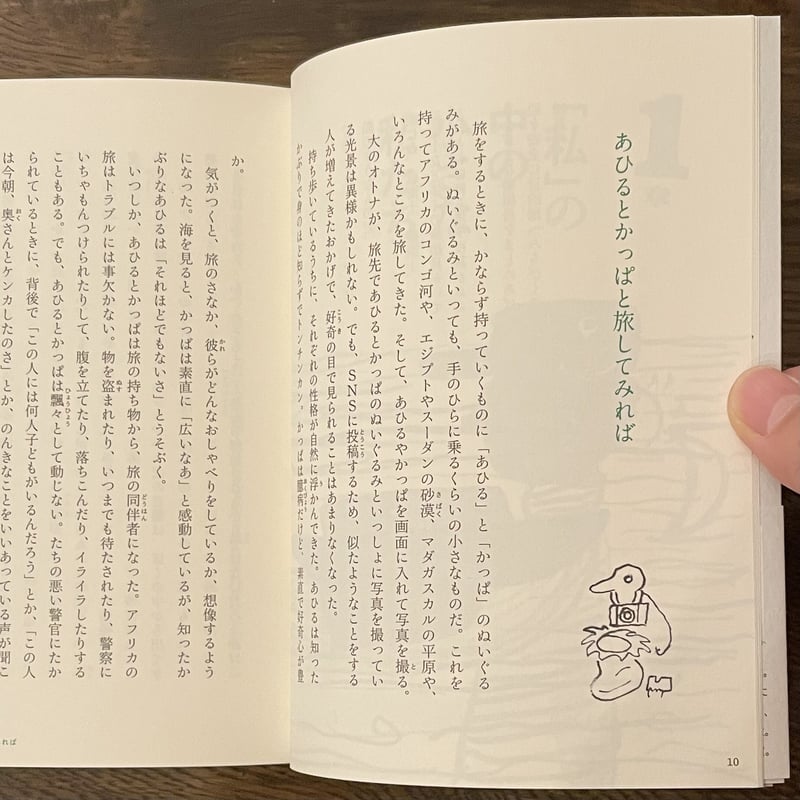 あひるとかっぱと旅してみれば
旅をするときに、かならず持っていくものに「あひる」と「かっぱ」のぬいぐる
みがある。ぬいぐるみといっても、手のひらに乗るくらいの小さなものだ。これを
持ってアフリカのコンゴ河や、エジプトやスーダンの砂漠、マダガスカルの平原や、
いろんなところを旅してきた。そして、あひるやかっぱを画面に入れて写真を撮る。
大のオトナが、旅先であひるとかっぱのぬいぐるみといっしょに写真を撮ってい
る光景は異様かもしれない。でも、SNSに投稿するため、似たようなことをする
人が増えてきたおかげで、好奇の目で見られることはあまりなくなった。
持ち歩いているうちに、それぞれの性格が自然に浮かんできた。あひるは知った
かぶりで身のほど知らずでトンチンカン。かっぱは臆病だけど、素直で好奇心が豊
10
か。
気がつくと、旅のさなか、彼らがどんなおしゃべりをしているか、想像するよう
になった。海を見ると、かっぱは素直に「広いなあ」と感動しているが、知ったか
ぶりなあひるは「それほどでもないさ」とうそぶく。
いつしか、あひるとかっぱは旅の持ち物から、旅の同伴者になった。アフリカの
旅はトラブルには事欠かない。物を盗まれたり、いつまでも待たされたり、警察に
いちゃもんつけられたりして、腹を立てたり、落ちこんだり、イライラしたりする
こともある。でも、あひるとかっぱは飄々として動じない。たちの悪い警官にたか
られているときに、背後で「この人には何人子どもがいるんだろう」とか、「この人
は今朝、奥さんとケンカしたのさ」とか、のんきなことをいいあっている声が聞こ
れば